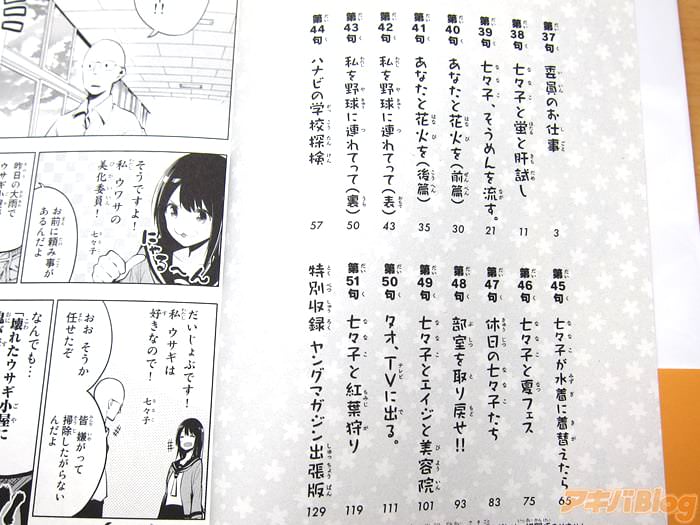 第37句 委員のお仕事 3
第38句 七々子と蛍と肝試し 11
第39句 七々子、そうめんを流す。 21
第40句 あなたと花火を(前篇) 30
第41句 あなたと花火を(後篇) 35
第42句 私を野球に連れてって(表) 43
第43句 私を野球に連れてって(裏) 50
第44句 ハナビの学校探検 57
第45句 七々子が水着に着替えたら 65
第46句 七々子と夏フェス 75
第47句 休日の七々子たち 83
第48句 部室を取り戻せ!! 93
第49句 七々子とエイジと美容院 101
第50句 タオ、TVに出る。 111
第51句 七々子と紅葉狩り 119
特別収録 ヤングマガジン出張版 129
そうですよ!
私 ウワサの
美化委員!
七々子
にゃる〜ん
お前に頼み事が
あるんだよ
昨日の大雨で
だいじょぶです!
私 ウサギは
好きなので!
七々子
おお そうか
任せたぞ
皆 嫌がって
掃除したがらない
んだよ
なんでも…
「壊れたウサギ小屋に
アキバBlog